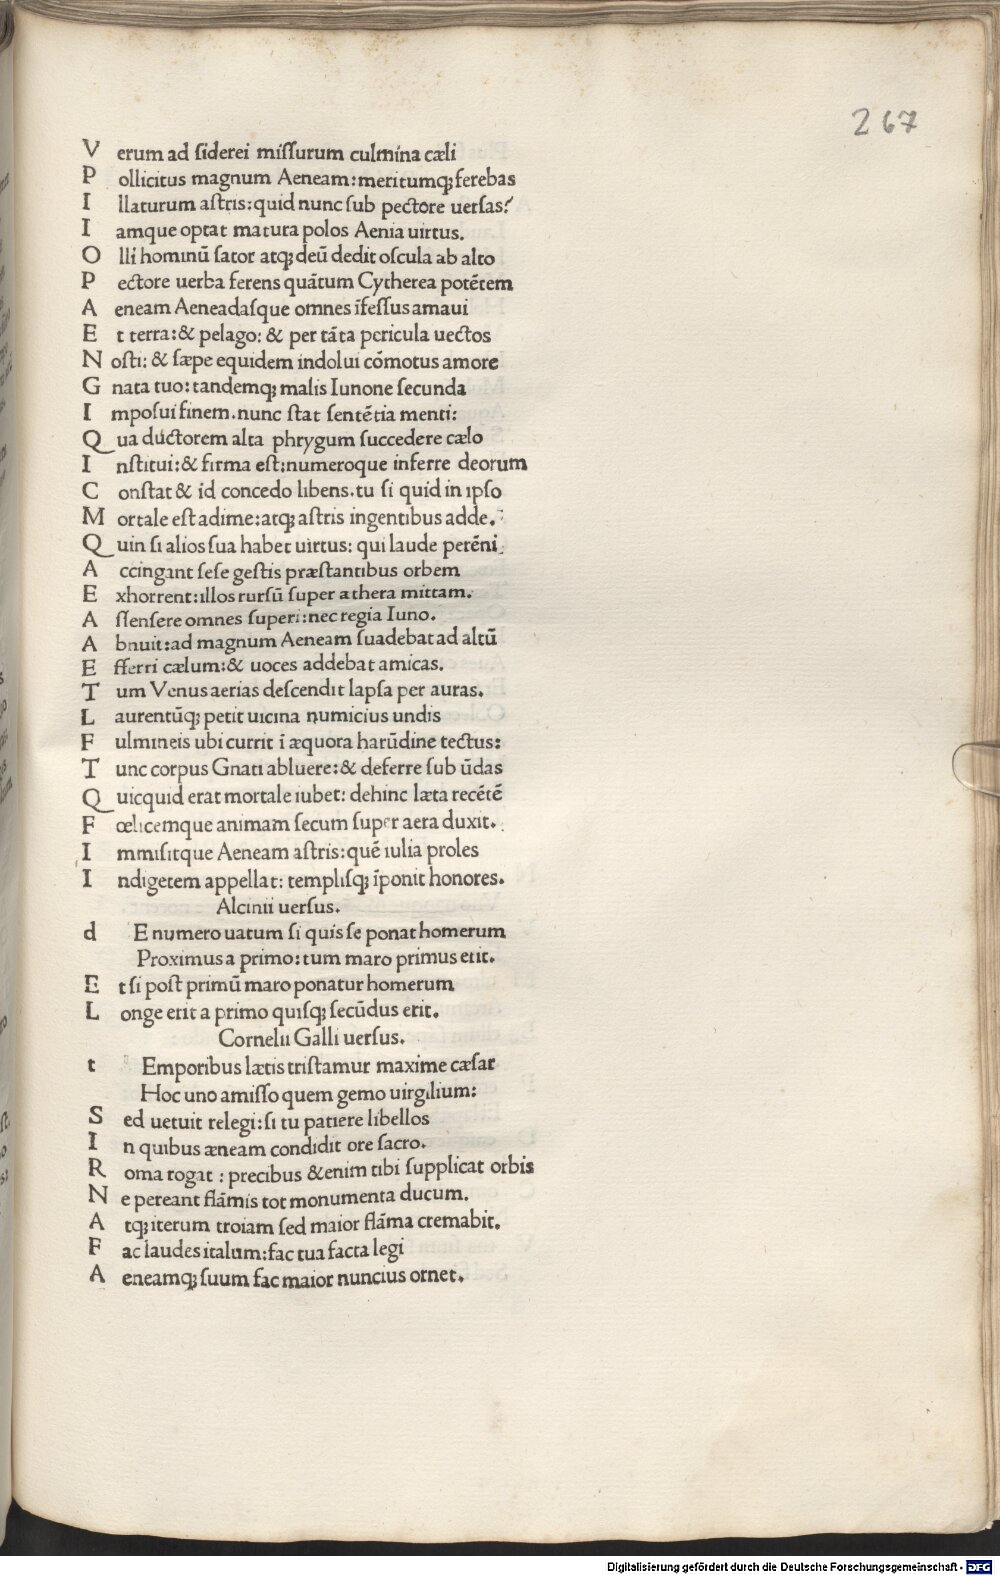 267
V erum ad siderei missurum culmina cæli
P ollicitus magnum Aeneam: meritumq; ferebas
I llaturum astris: quid nunc sub pectore uersas?
I amque optat matura polos Aenia uirtus.
O lli hominū sator atq; deū dedit oscula ab alto
P ectore uerba ferens quātum Cytherea potētem
A eneam Aeneadasque omnes īfessus amaui
E t terra: & pelago: & per tāta pericula uectos
N osti: & sæpe equidem indolui cōmotus amore
G nata tuo: tandemq; malis Iunone secunda
I mposui finem. nunc stat sentētia menti:
Q ua ductorem alta phrygum succedere cælo
I nstitui: & firma est: numeroque inferre deorum
C onstat & id concedo libens. tu si quid in ipso
M ortale est adime: atq; astris ingentibus adde.
Q uin si alios sua habet uirtus: qui laude perēni
A ccingant sese gestis præstantibus orbem
E xhorrent: illos rursū super athera mittam.
A ssensere omnes superi: nec regia Iuno.
A bnuit: ad magnum Aeneam suadebat ad altū
E fferri cælum: & uoces addebat amicas.
T um Venus aerias descendit lapsa per auras.
L aurentūq; petit uicina numicius undis
F ulmineis ubi currit ī æquora harūdine tectus:
T unc corpus Gnati abluere: & deferre sub ūdas
Q uicquid erat mortale iubet: dehinc læta recētē
F œlicemque animam secum super aera duxit.
I mmisitque Aeneam astris: quē iulia proles
I ndigetem appellat: templisq; īponit honores.
Alcinii uersus.
d E numero uatum si quis se ponat homerum
Proximus a primo: tum maro primus erit.
E t si post primū maro ponatur homerum
L onge erit a primo quisq; secūdus erit.
Cornelii Galli uersus.
t Emporibus lætis tristamur maxime cæsar
Hoc uno amisso quem gemo uirgilium:
S ed uetuit relegi: si tu patiere libellos
I n quibus æneam condidit ore sacro.
R oma rogat: precibus & enim tibi supplicat orbis
N e pereant flāmis tot monumenta ducum.
A tq; iterum troiam sed maior flāma cremabit.
F ac laudes italum: fac tua facta legi
A eneamq; suum fac maior nuncius ornet.
Digitalisierung gefördert durch die Deutsche Forschungsgemeinschaft - DFG